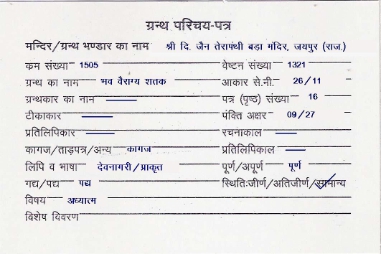 ग्रन्थ परिचय-पत्र
मन्दिर/ग्रन्थ भण्डार का नाम श्री दि. जैन तेरापंथी बड़ा मंदिर, जयपुर (राज.)
क्रम संख्या 1505 वेष्टन संख्या 1321
ग्रन्थ का नाम भव वैराग्य शतक आकार से.मी. 26/11
ग्रन्थकार का नाम पत्र (पृष्ठ) संख्या 16
टीकाकार पंक्ति अक्षर 09/27
प्रतिलिपिकार रचनाकाल
कागज/ताड़पत्र/अन्य कागज प्रतिलिपिकाल
लिपि व भाषा देवनागरी/प्राकृत पूर्ण/अपूर्ण पूर्ण
गद्य/पद्य पद्य स्थिति:जीर्ण/अतिजीर्ण/सामान्य
विषय अध्यात्म
विशेष विवरण